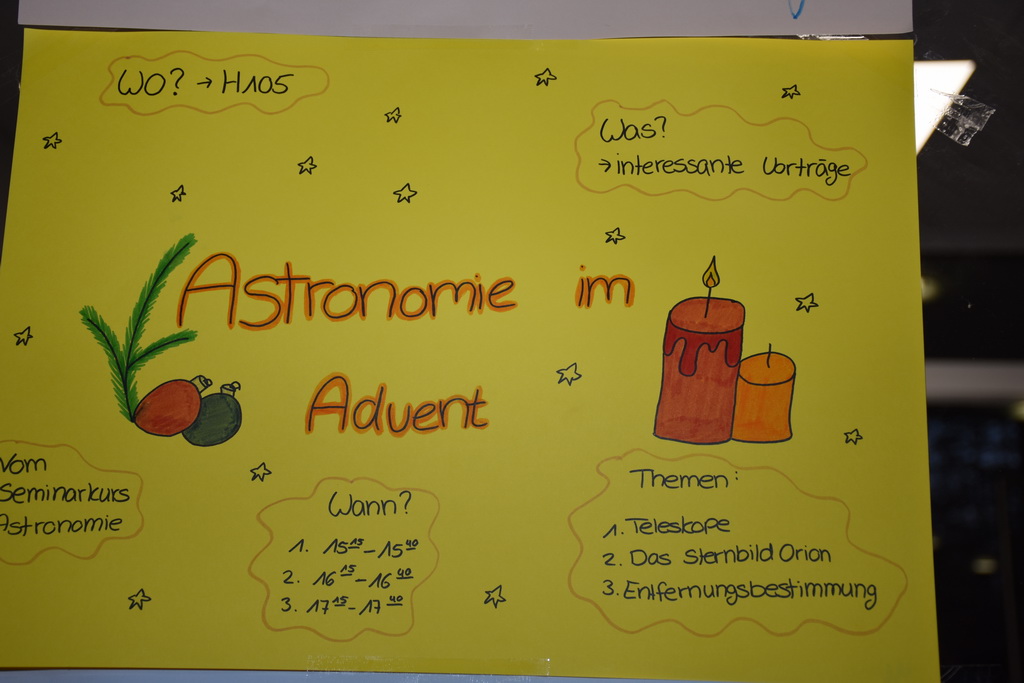 WO? → H105
Was?
→ interessante Vorträge
Astronomie im
Advent
Vom
Seminarkurs
Astronomie
Wann?
1. 15¹⁵ - 15⁴⁰
2. 16¹⁵ - 16⁴⁰
3. 17¹⁵ - 17⁴⁰
Themen:
1. Teleskope
2. Das Sternbild Orion
3. Entfernungsbestimmung